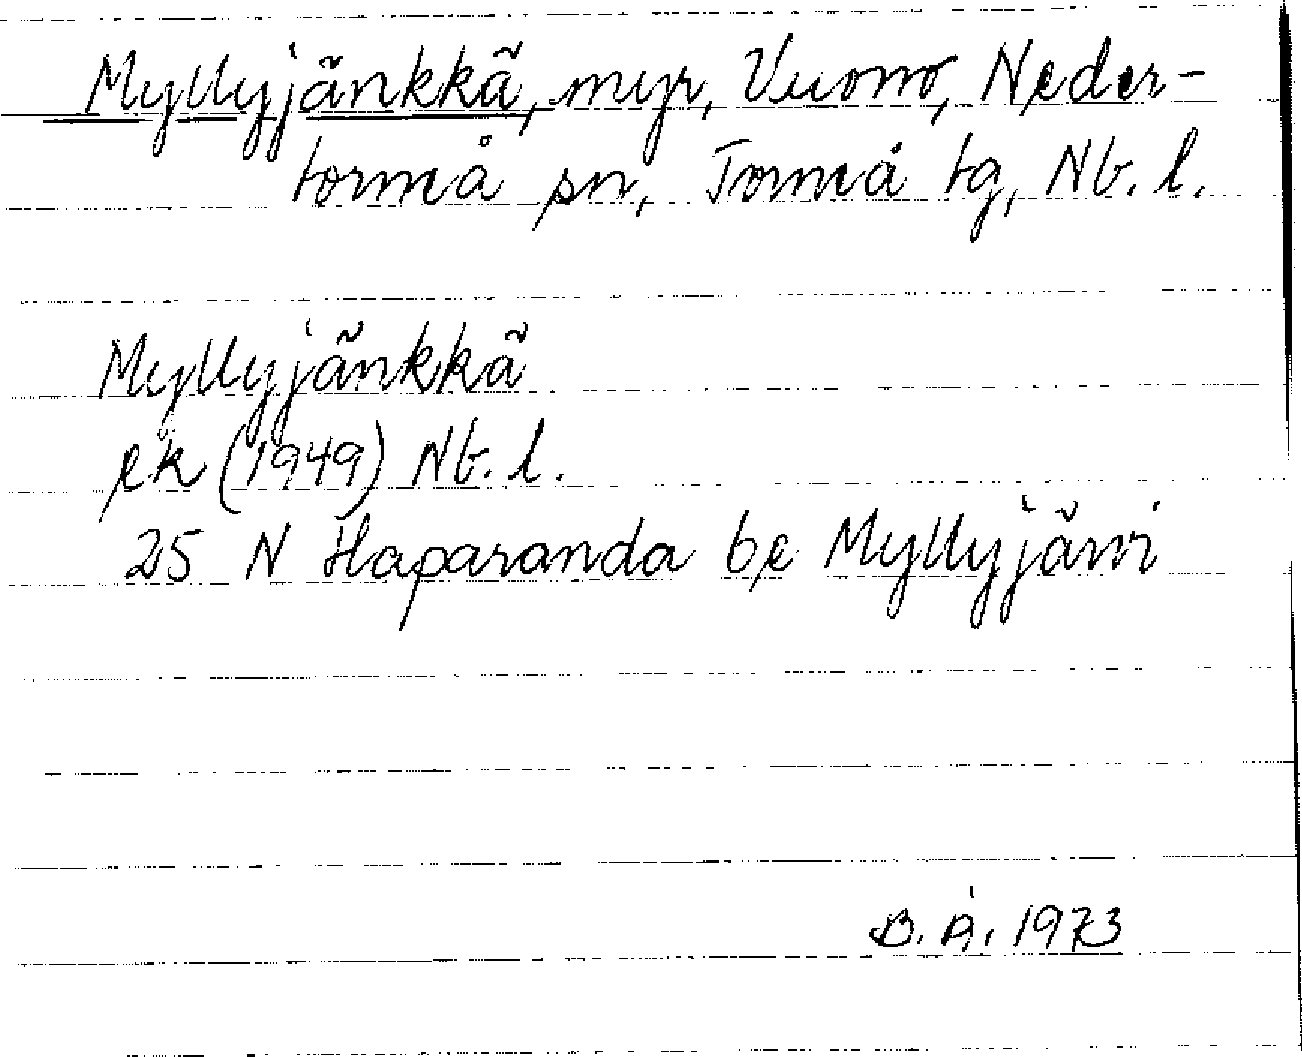 Myllyjänkkä, myr, Vuono, Neder-
torneå sn, Torneå tg, Nb. l.
Myllyjänkkä
ek (1949) Nb. l.
25 N Haparanda be Myllyjärvi
B. Å. 1973